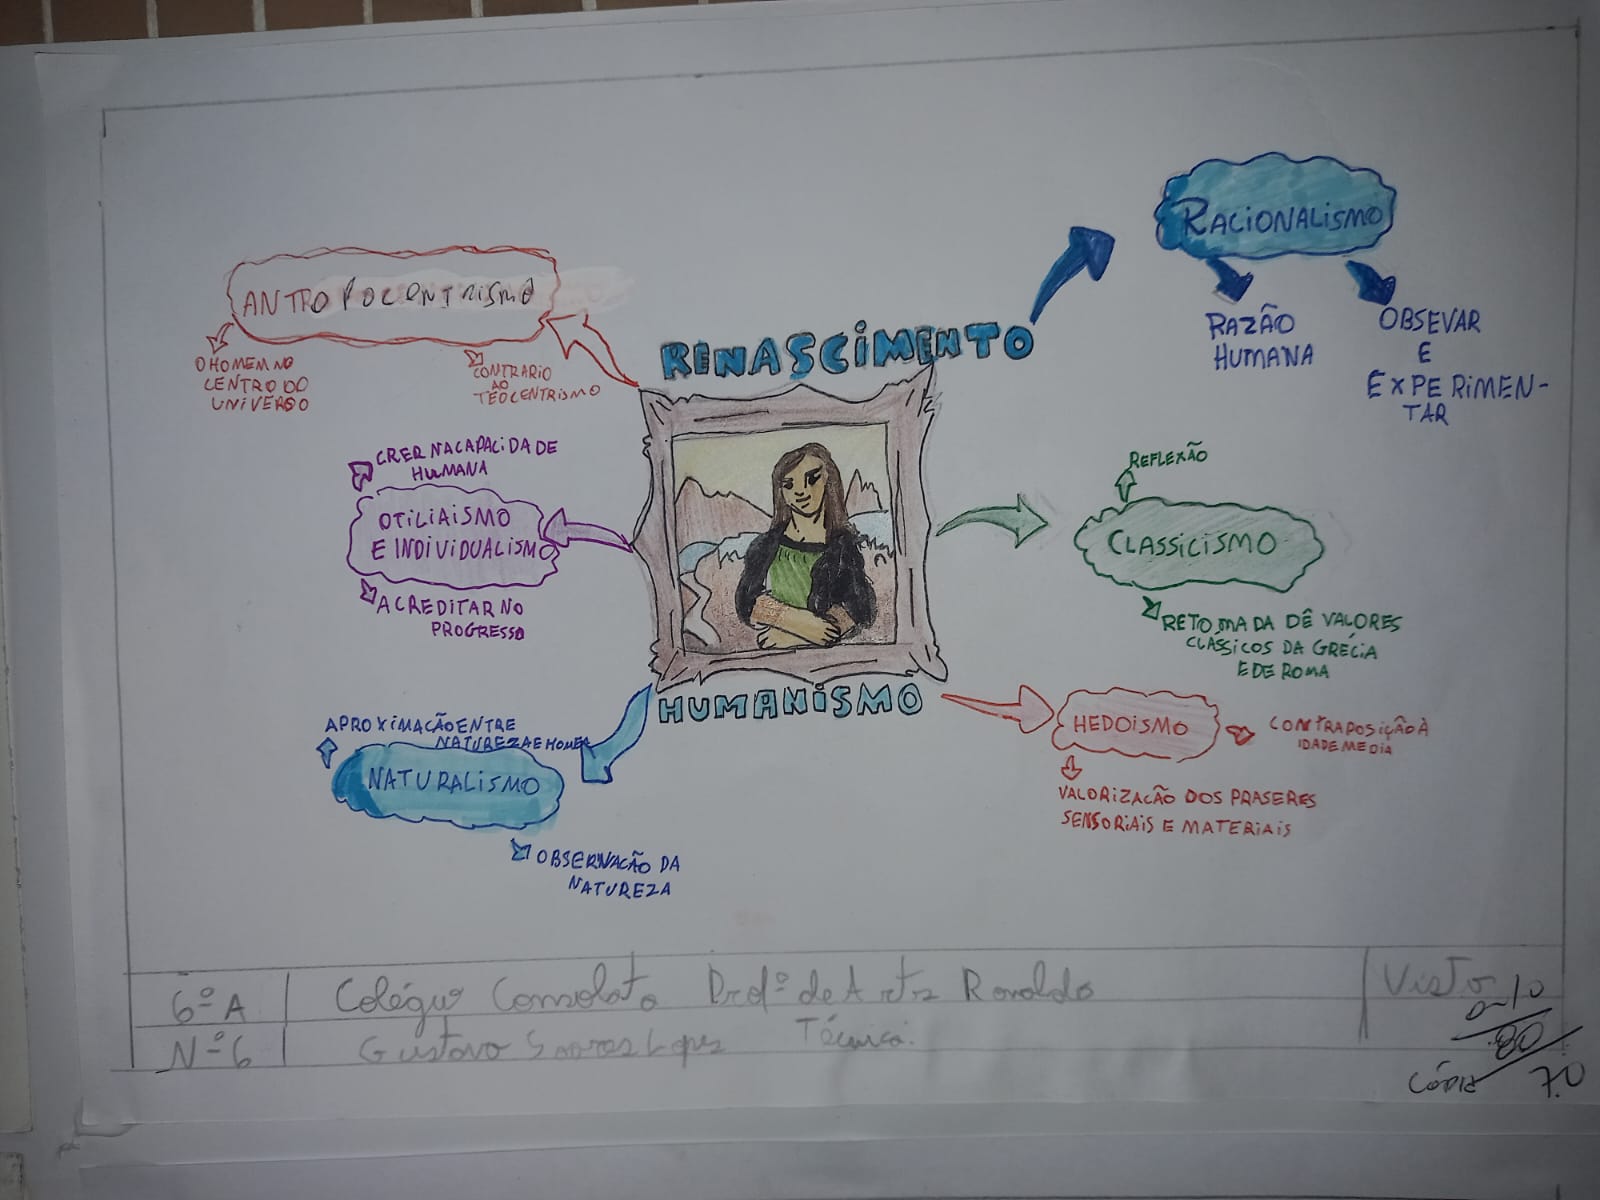 RENASCIMENTO
HUMANISMO
RACIONALISMO
RAZÃO
HUMANA
OBSEVAR
E
EXPERIMEN-
TAR
ANTROPOCENTRISMO
O HOMEM NO
CENTRO DO
UNIVERSO
CONTRARIO
AO
TEOCENTRISMO
CRER NA CAPACIDADE
HUMANA
OTILIAISMO
E INDIVIDUALISMO
ACREDITAR NO
PROGRESSO
REFLEXÃO
CLASSICISMO
RETOMADA DÊ VALORES
CLÁSSICOS DA GRÉCIA
E DE ROMA
APROXIMAÇÃO ENTRE
NATUREZA E HOMEM
NATURALISMO
OBSERVAÇÃO DA
NATUREZA
HEDOISMO
CONTRAPOSIÇÃO À
IDADE MEDIA
VALORIZAÇÃO DOS PRASERES
SENSORIAIS E MATERIAIS
6º A
Colégio Consolata Profº de Arts Ronaldo
Visto
Nº 6
Gustavo Soares Lopes Técnica:
80
7.0